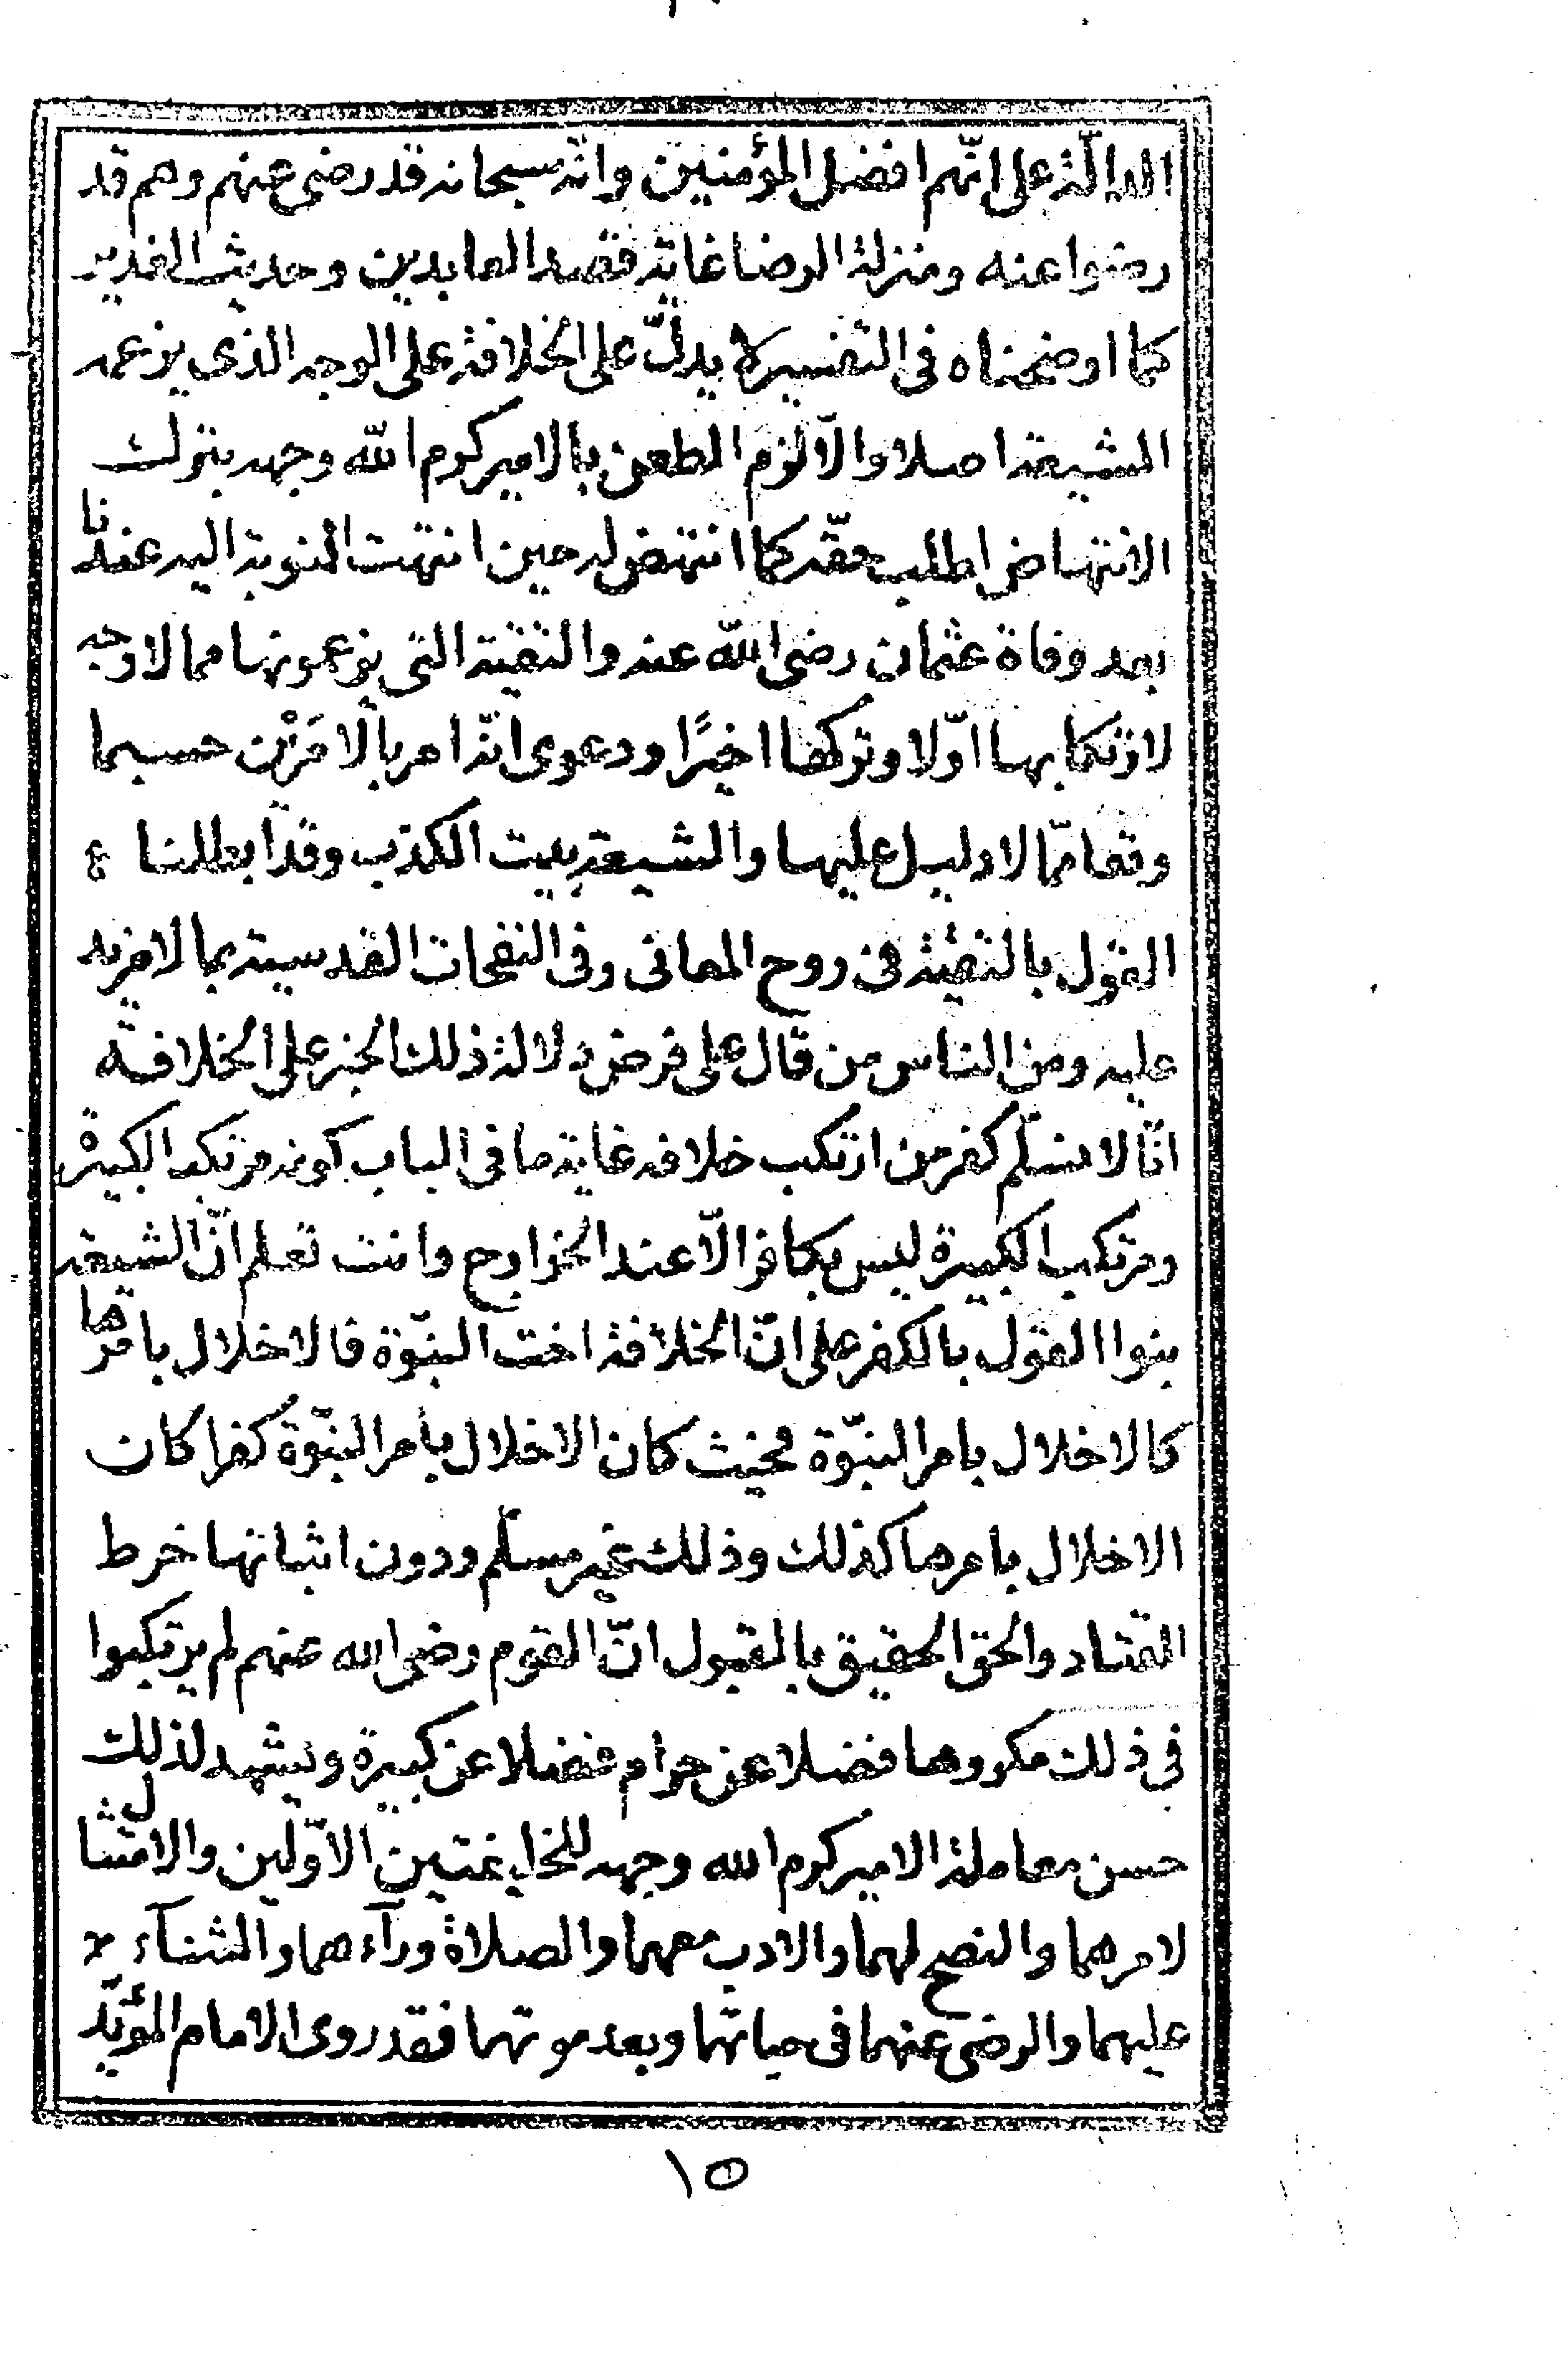 الدالّة على انّهم افضل المؤمنين وانّه سبحانه قد رضى عنهم وهم قد
رضوا عنه ومنزلة الرضا غاية قصد العابدين وحديث الغدير
كما اوضحناه فى التفسير لا يدلّ على الخلافة على الوجه الذى يزعمه
الشيعة اصلا والّا لزم الطعن بالامير كرم الله وجهه بترك
الانتهاض لطلب حقّه كما انتهض له حين انتهت النوبة اليه عندنا
بعد وفاة عثمان رضى الله عنه والتقية التى يزعمونها مما لا وجه
لارتكابها اوّلا وتركها اخيرًا ودعوى انّه امر بالامرَيْن حسبما
وقعا ممّا لا دليل عليها والشيعة بيت الكذب وقد ابطلنا
القول بالتقيّة فى روح المعانى وفى النفحات القدسية بما لا مزيد
عليه ومن الناس من قال على فرض دلالة ذلك الخبر على الخلافة
انّا لا نسلّم كفر من ارتكب خلافه غاية ما فى الباب كونه مرتكب الكبيرة
ومرتكب الكبيرة ليس بكافر الّا عند الخوارج وانت تعلم انّ الشيعة
بنوا القول بالكفر على انّ الخلافة اخت النبوّة فالاخلال بامرها
كالاخلال بامر النبوّة فحيث كان الاخلال بامر النبوّة كفرا كان
الاخلال بامرها كذلك وذلك غير مسلّم ودون اثباتها خرط
القتاد والحق الحقيق بالقبول انّ القوم رضى الله عنهم لم يرتكبوا
فى ذلك مكروها فضلا عن حرام فضلا عن كبيرة ويشهد لذلك
حسن معاملة الامير كرم الله وجهه للخليفتين الاوّلين والامتثال
لامرهما والنصح لهما والادب معهما والصلاة ورآءهما والثنآء
عليهما والرضى عنهما فى حياتهما وبعد موتهما فقد روى الامام المؤيّد
١٥